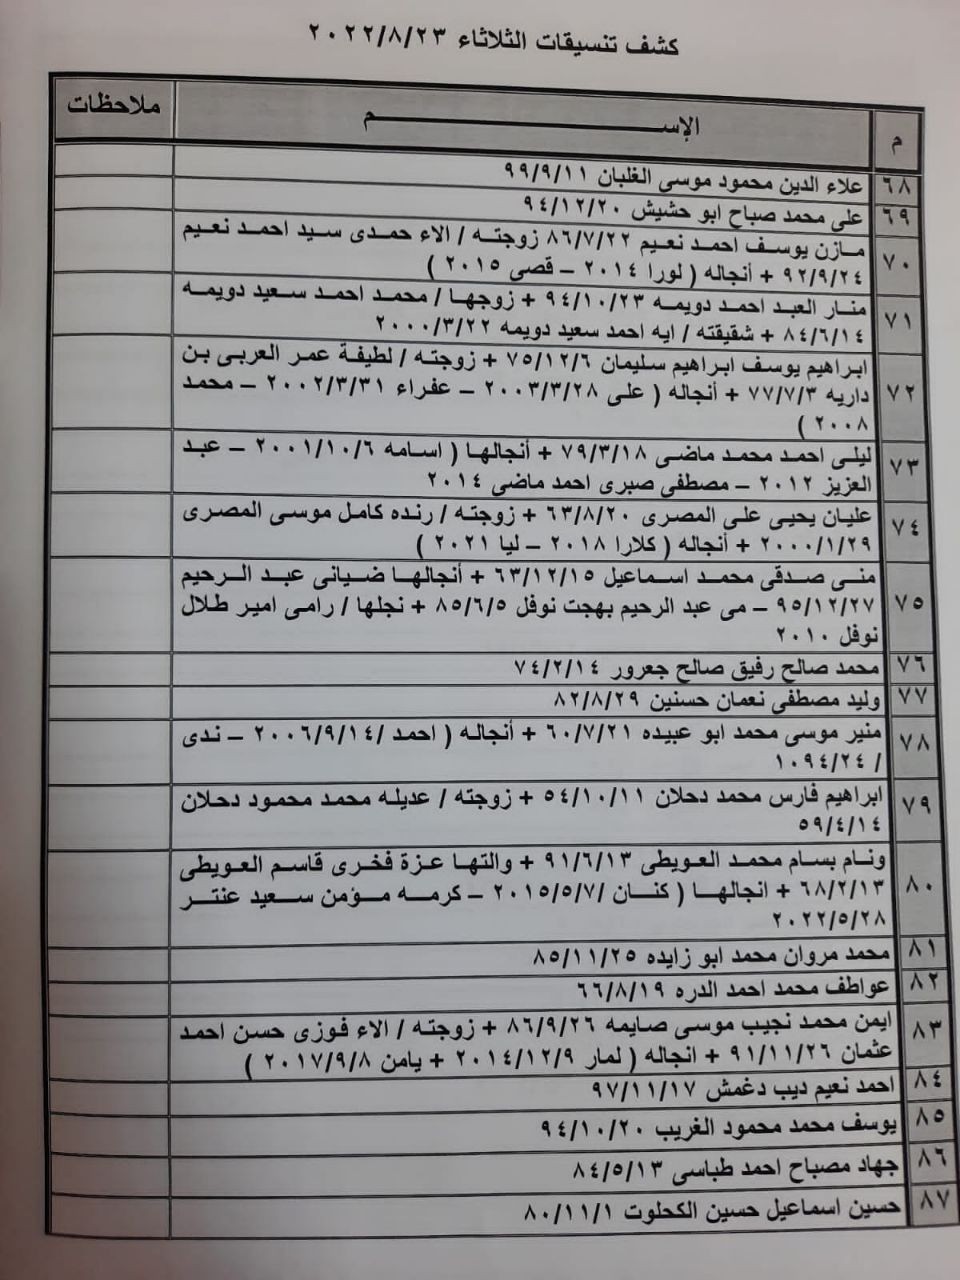 كشف تنسيقات الثلاثاء ٢٠٢٢/٨/٢٣
م الإســـم ملاحظات
٦٨ علاء الدين محمود موسى الغلبان ٩٩/٩/١١
٦٩ على محمد صباح ابو حشيش ٩٤/١٢/٢٠
٧٠ مازن يوسف احمد نعيم ٨٦/٧/٢٢ زوجته / الاء حمدى سيد احمد نعيم
٩٢/٩/٢٤ + أنجاله ( لورا ٢٠١٤ – قصى ٢٠١٥ )
٧١ منار العبد احمد دويمه ٩٤/١٠/٢٣ + زوجها / محمد احمد سعيد دويمه
٨٤/٦/١٤ + شقيقته / ايه احمد سعيد دويمه ٢٠٠٠/٣/٢٢
٧٢ ابراهيم يوسف ابراهيم سليمان ٧٥/١٢/٦ + زوجته / لطيفة عمر العربى بن
داريه ٧٧/٧/٣ + أنجاله ( على ٢٠٠٣/٣/٢٨ – عفراء ٢٠٠٢/٣/٣١ – محمد
٢٠٠٨ )
٧٣ ليلى احمد محمد ماضى ٧٩/٣/١٨ + أنجالها ( اسامه ٢٠٠١/١٠/٦ – عبد
العزيز ٢٠١٢ – مصطفى صبرى احمد ماضى ٢٠١٤
٧٤ عليان يحيى على المصرى ٦٣/٨/٢٠ + زوجته / رنده كامل موسى المصرى
٢٠٠٠/١/٢٩ + أنجاله ( كلارا ٢٠١٨ – ليا ٢٠٢١ )
٧٥ منى صدقى محمد اسماعيل ٦٣/١٢/١٥ + أنجالها ضيانى عبد الرحيم
٩٥/١٢/٢٧ – مى عبد الرحيم بهجت نوفل ٨٥/٦/٥ + نجلها / رامى امير طلال
نوفل ٢٠١٠
٧٦ محمد صالح رفيق صالح جعرور ٧٤/٢/١٤
٧٧ وليد مصطفى نعمان حسنين ٨٢/٨/٢٩
٧٨ منير موسى محمد ابو عبيده ٦٠/٧/٢١ + أنجاله ( احمد /٢٠٠٦/٩/١٤ – ندى
/ ١٠٩٤/٢٤
٧٩ ابراهيم فارس محمد دحلان ٥٤/١٠/١١ + زوجته / عديله محمد محمود دحلان
٥٩/٤/١٤
٨٠ ونام بسام محمد العويطى ٩١/٦/١٣ + والتها عزة فخرى قاسم العويطى
٦٨/٢/١٣ + انجالها ( كنان /٢٠١٥/٥/٧ – كرمه مؤمن سعيد عنتر
٢٠٢٢/٥/٢٨
٨١ محمد مروان محمد ابو زايده ٨٥/١١/٢٥
٨٢ عواطف محمد احمد الدره ٦٦/٨/١٩
٨٣ ايمن محمد نجيب موسى صايمه ٨٦/٩/٢٦ + زوجته / الاء فوزى حسن احمد
عثمان ٩١/١١/٢٦ + انجاله ( لمار ٢٠١٤/١٢/٩ + يامن ٢٠١٧/٩/٨ )
٨٤ احمد نعيم ديب دغمش ٩٧/١١/١٧
٨٥ يوسف محمد محمود الغريب ٩٤/١٠/٢٠
٨٦ جهاد مصباح احمد طباسى ٨٤/٥/١٣
٨٧ حسين اسماعيل حسين الكحلوت ٨٠/١١/١